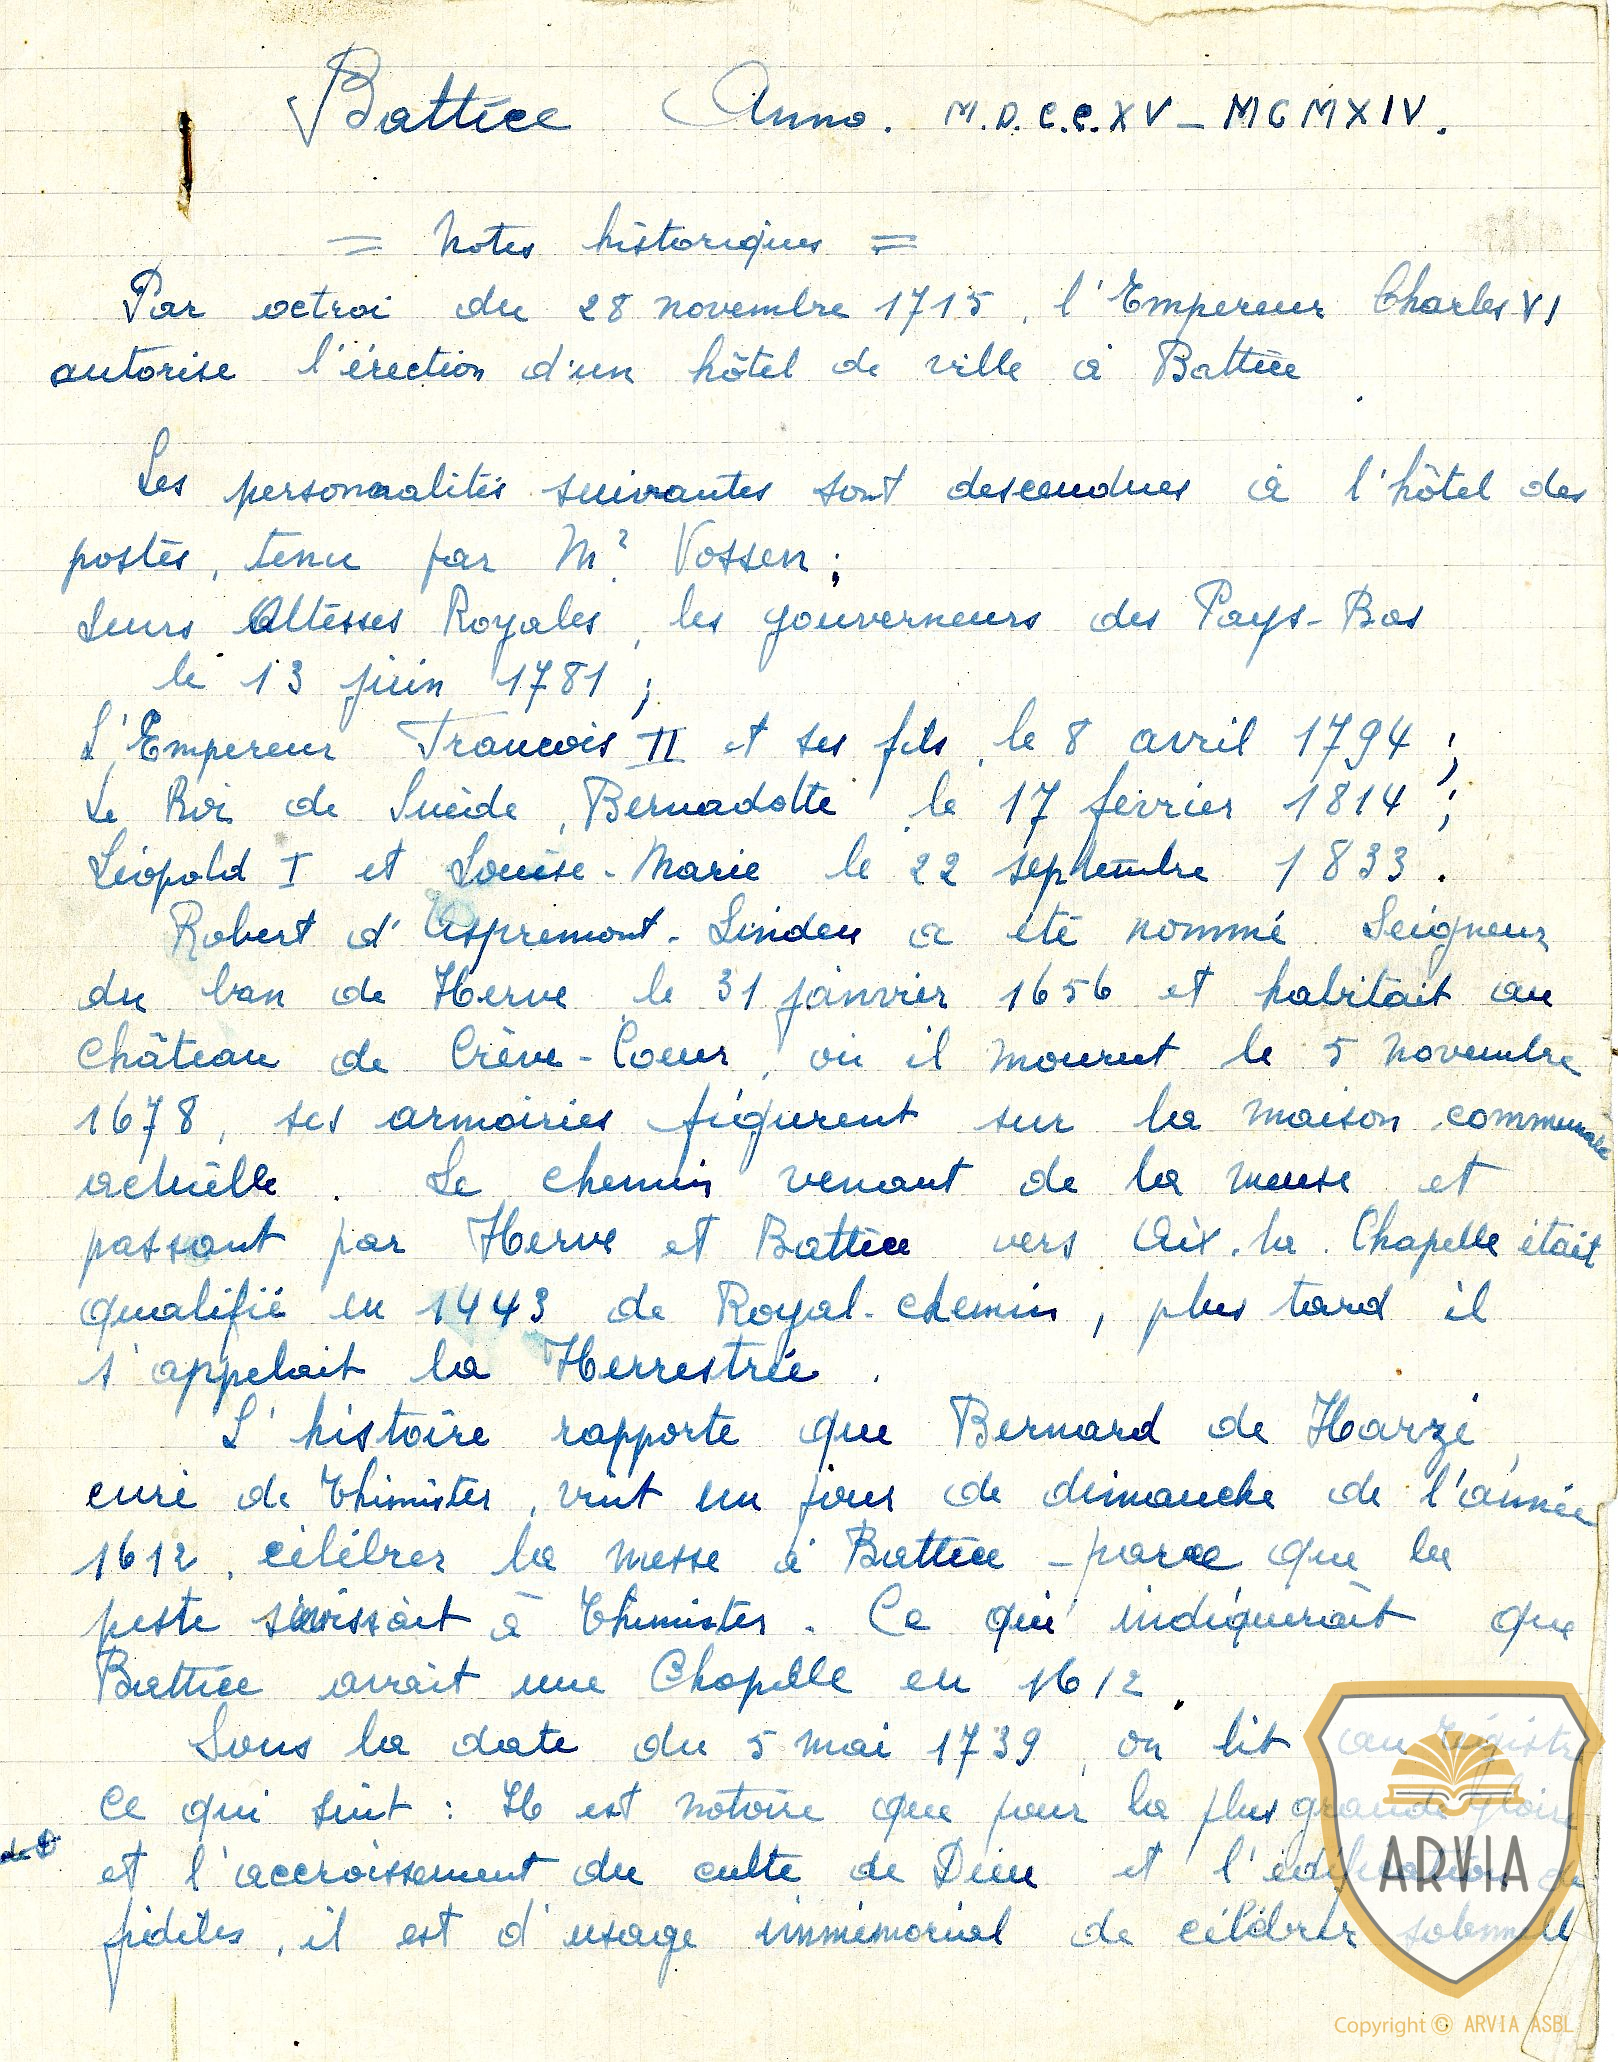 Battice Anno. M.D.C.C.XV – MCMXIV.
= Notes historiques =
Par octroi du 28 novembre 1715, l'Empereur Charles VI
autorise l'érection d'un hôtel de ville à Battice.
Les personnalités suivantes sont descendues à l'hôtel des
postes, tenu par Mr Vossen ;
Leurs Altesses Royales, les gouverneurs des Pays-Bas
le 13 juin 1781 ;
L'Empereur Francois II et ses fils, le 8 avril 1794 ;
Le Roi de Suède, Bernadotte, le 17 février 1814 ;
Léopold I et Louise-Marie le 22 septembre 1833.
Robert d'Aspremont-Linden a été nommé Seigneur
du ban de Herve, le 31 janvier 1656 et habitait au
Château de Crève-Coeur, où il mourut le 5 novembre
1678, ses armoiries figurent sur la maison communale
actuelle. Le chemin venant de la meuse et
passant par Herve et Battice vers Aix-la-Chapelle était
qualifié en 1443 de Royal-chemin, plus tard il
s'appelait la Herrestrée.
L'histoire rapporte que Bernard de Harzé,
curé de Thimister, vint un jour de dimanche de l'année
1612, célébrer la messe à Battice – parce que la
peste sévissait à Thimister. Ce qui indiquerait que
Battice avait une Chapelle en 1612.
Sous la date du 5 mai 1739, on lit au registre
Ce qui suit : Il est notoire que pour la plus grande gloire
et l'accroissement du culte de Dieu et l'édification de
fidèles, il est d'usage immémorial de célébrer solennell
ARVIA
Copyright © ARVIA ASBL